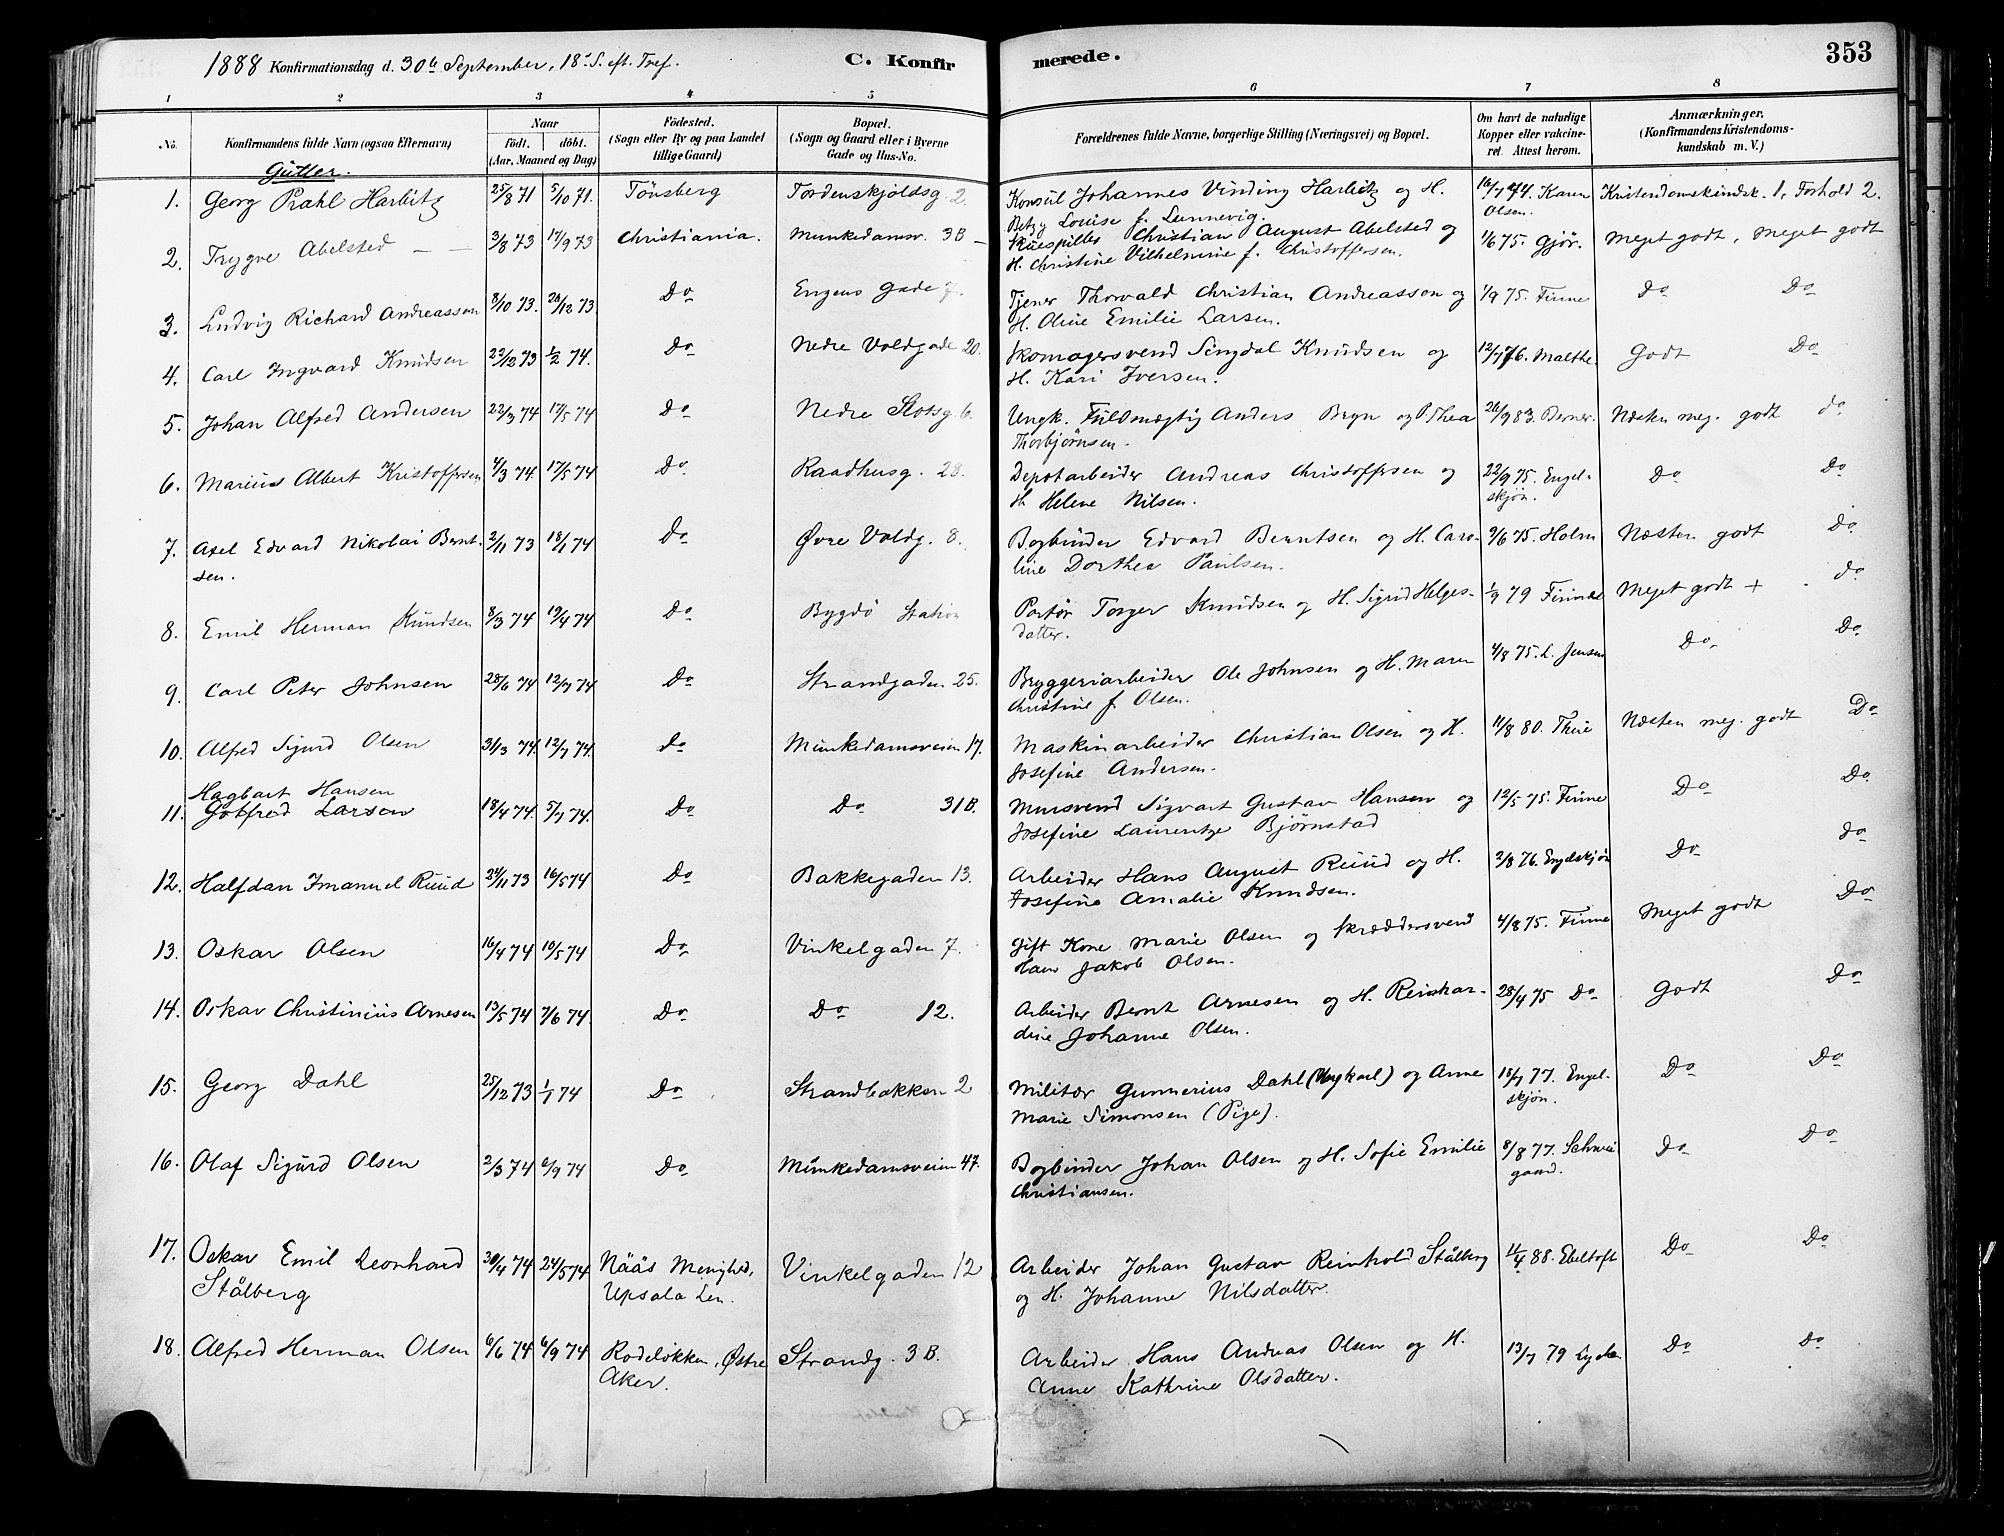 1888 Konfirmationsdag d. 30te September, 18de S. eft. Tref. C. Konfirmerede. 353
1 2 3 4 5 6 7 8
No. Konfirmandens fulde Navn (ogsaa Efternavn) Naar födt. döbt. (Aar, Maaned og Dag) Födested. (Sogn eller By og paa Landet tillige Gaard) Bopæl. (Sogn og Gaard eller i Byerne Gade og Hus-No. Forældrenes fulde Navne, borgerlige Stilling (Næringsvei) og Bopæl. Om havt de naturlige Kopper eller vakcineret. Attest herom. Anmærkninger. (Konfirmandens Kristendomskundskab m. V.)
Gutter.
1. Georg Prahl Harbitz 25/8 71 5/10 71. Tönsberg Tordenskjoldsg. 2. Konsul Johannes Vinding Harbitz og H. 16/7 74. Karen Kristendomskundsk. 1, Forhold 2.
Betzy Louise f. Lunnevig. Olsen.
2. Trygve Abelsted — — 3/8 73 17/9 73 Christiania. Munkedamsv. 3B — Skuespiller Christian August Abelsted og 1/6 75. Gjør. Meget godt, meget godt
H. Christine Vilhelmine f. Christoffersen.
3. Ludvig Richard Andreasson 8/10 73. 26/12 73 Do Engens Gade 7. Tjener Thorvald Christian Andreasson og 1/9 75. Finne Do Do
H. Oline Emilie Larsen.
4. Carl Ingvard Knudsen 22/12 73 1/2 74. Do Nedre Voldgade 20. Skomagersvend Singdal Knudsen og 12/7 76. Malthe Godt Do
H. Kari Iversen.
5. Johan Alfred Andersen 22/3 74 17/5 74 Do Nedre Slotsg. 6. Ungk. Fuldmægtig Anders Bryn og P. Thea 26/9 83. Berner. Næsten meg. godt do
Thorbjørnsen.
6. Marius Albert Kristoffersen 4/3 74. 17/5 74 Do Raadhusg. 28. Depotarbeider Andreas Christoffersen og 22/9 75. Engel- Do Do
H. Helene Nilsen. skjøn.
7. Axel Edvard Nikolai Bernt- 2/11 73 18/1 74 Do Øvre Voldg. 8. Bogbinder Edvard Berntsen og H. Caro- 9/6 75. Holm Næsten godt Do
sen. line Dorthea Paulsen.
8. Emil Herman Knudsen 8/3 74 19/4 74 Do Bygdö Station Portør Torger Knudsen og H. Sigrid Helges- 1/9 79 Meget godt + do
datter.
9. Carl Peter Johnsen 28/6 74 12/7 74 Do Strandgaden 25. Bryggeriarbeider Ole Johnsen og H. Maren 4/8 75. L. Jensen Do Do
Christine f. Olsen.
10. Alfred Sigurd Olsen 31/3 74. 12/7 74. Do Munkedamsveien 17. Maskinarbeider Christian Olsen og H. 11/8 80. Thue Næsten meg. godt Do
Josefine Andersen.
Hagbart Hansen
11. Gotfred Larsen 18/4 74. 5/7 74. Do Do 31B. Mursvend Sigvart Gustav Hansen og 12/5 75. Finne Do Do
Josefine Laurentze Bjørnstad
12. Halfdan Imanuel Ruud 24/11 73 16/5 74 Do Bakkegaden 13. Arbeider Hans August Ruud og H. 2/8 76. Engelskjøn Do do
Josefine Amalie Knudsen.
13. Oskar Olsen 16/4 74 10/5 74 Do Vinkelgaden 7. Gift Kone Marie Olsen og Skræddersvend 4/8 75. Finne Meget godt Do
Hans Jakob Olsen.
14. Oskar Christinius Arnesen 13/5 74 7/6 74. Do Do 12. Arbeider Bernt Arnesen og H. Reinhar- 28/4 75 Do Godt Do
dine Johanne Olsen.
15. Georg Dahl 25/12 73 1/1 74 Do Strandbakken 2 Militær Gunnerius Dahl (Ungkarl) og Anne 18/7 77. Engel- Do Do
Marie Simonsen (Pige). skjøn.
16. Olaf Sigurd Olsen 2/3 74 6/9 74 Do Munkedamsveien 47. Bogbinder Johan Olsen og H. Sofie Emilie 8/8 77. Schwei- Do Do
Christiansen. gaard.
17. Oskar Emil Leonhard 30/4 74 24/5 74 Nääs Menighed, Vinkelgaden 12 Arbeider Johan Gustav Reinhold Stålberg 11/4 88. Ebeltoft Do Do
Stålberg Upsala Len. og H. Johanne Nilsdatter.
18. Alfred Herman Olsen 6/6 74 6/9 74 Rodeløkken, Østre Strandg. 3B. Arbeider Hans Andreas Olsen og H. 13/7 79 Do Do
Aker. Anne Kathrine Olsdatter.